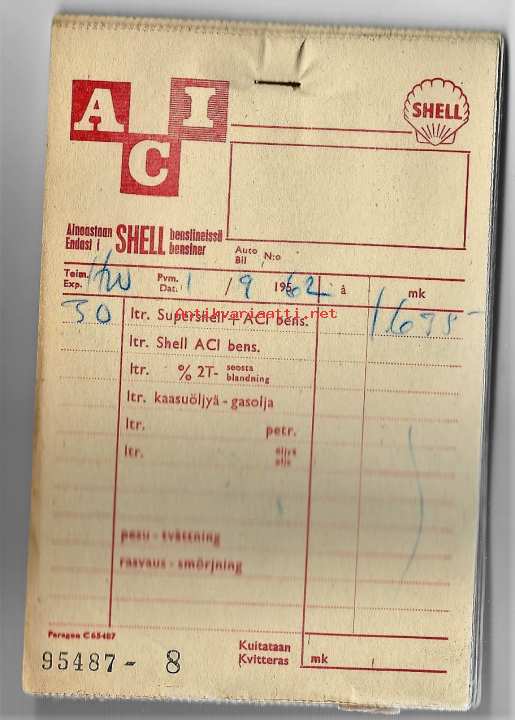 A I
C
SHELL
Ainoastaan SHELL bensiineissä
Endast i bensiner
Auto N:o
Bil
Toim. Pvm. 1 / 9 195 62 à mk
Exp. Dat.
30 ltr. Supershell + ACI bens. 1695-
antikvariaatti.net
ltr. Shell ACI bens.
ltr. % 2T- seosta
blandning
ltr. kaasuöljyä - gasolja
ltr. petr.
ltr. öljyä
olja
pesu - tvättning
rasvaus - smörjning
Paragon C 65487
95487 - 8
Kuitataan
Kvitteras mk